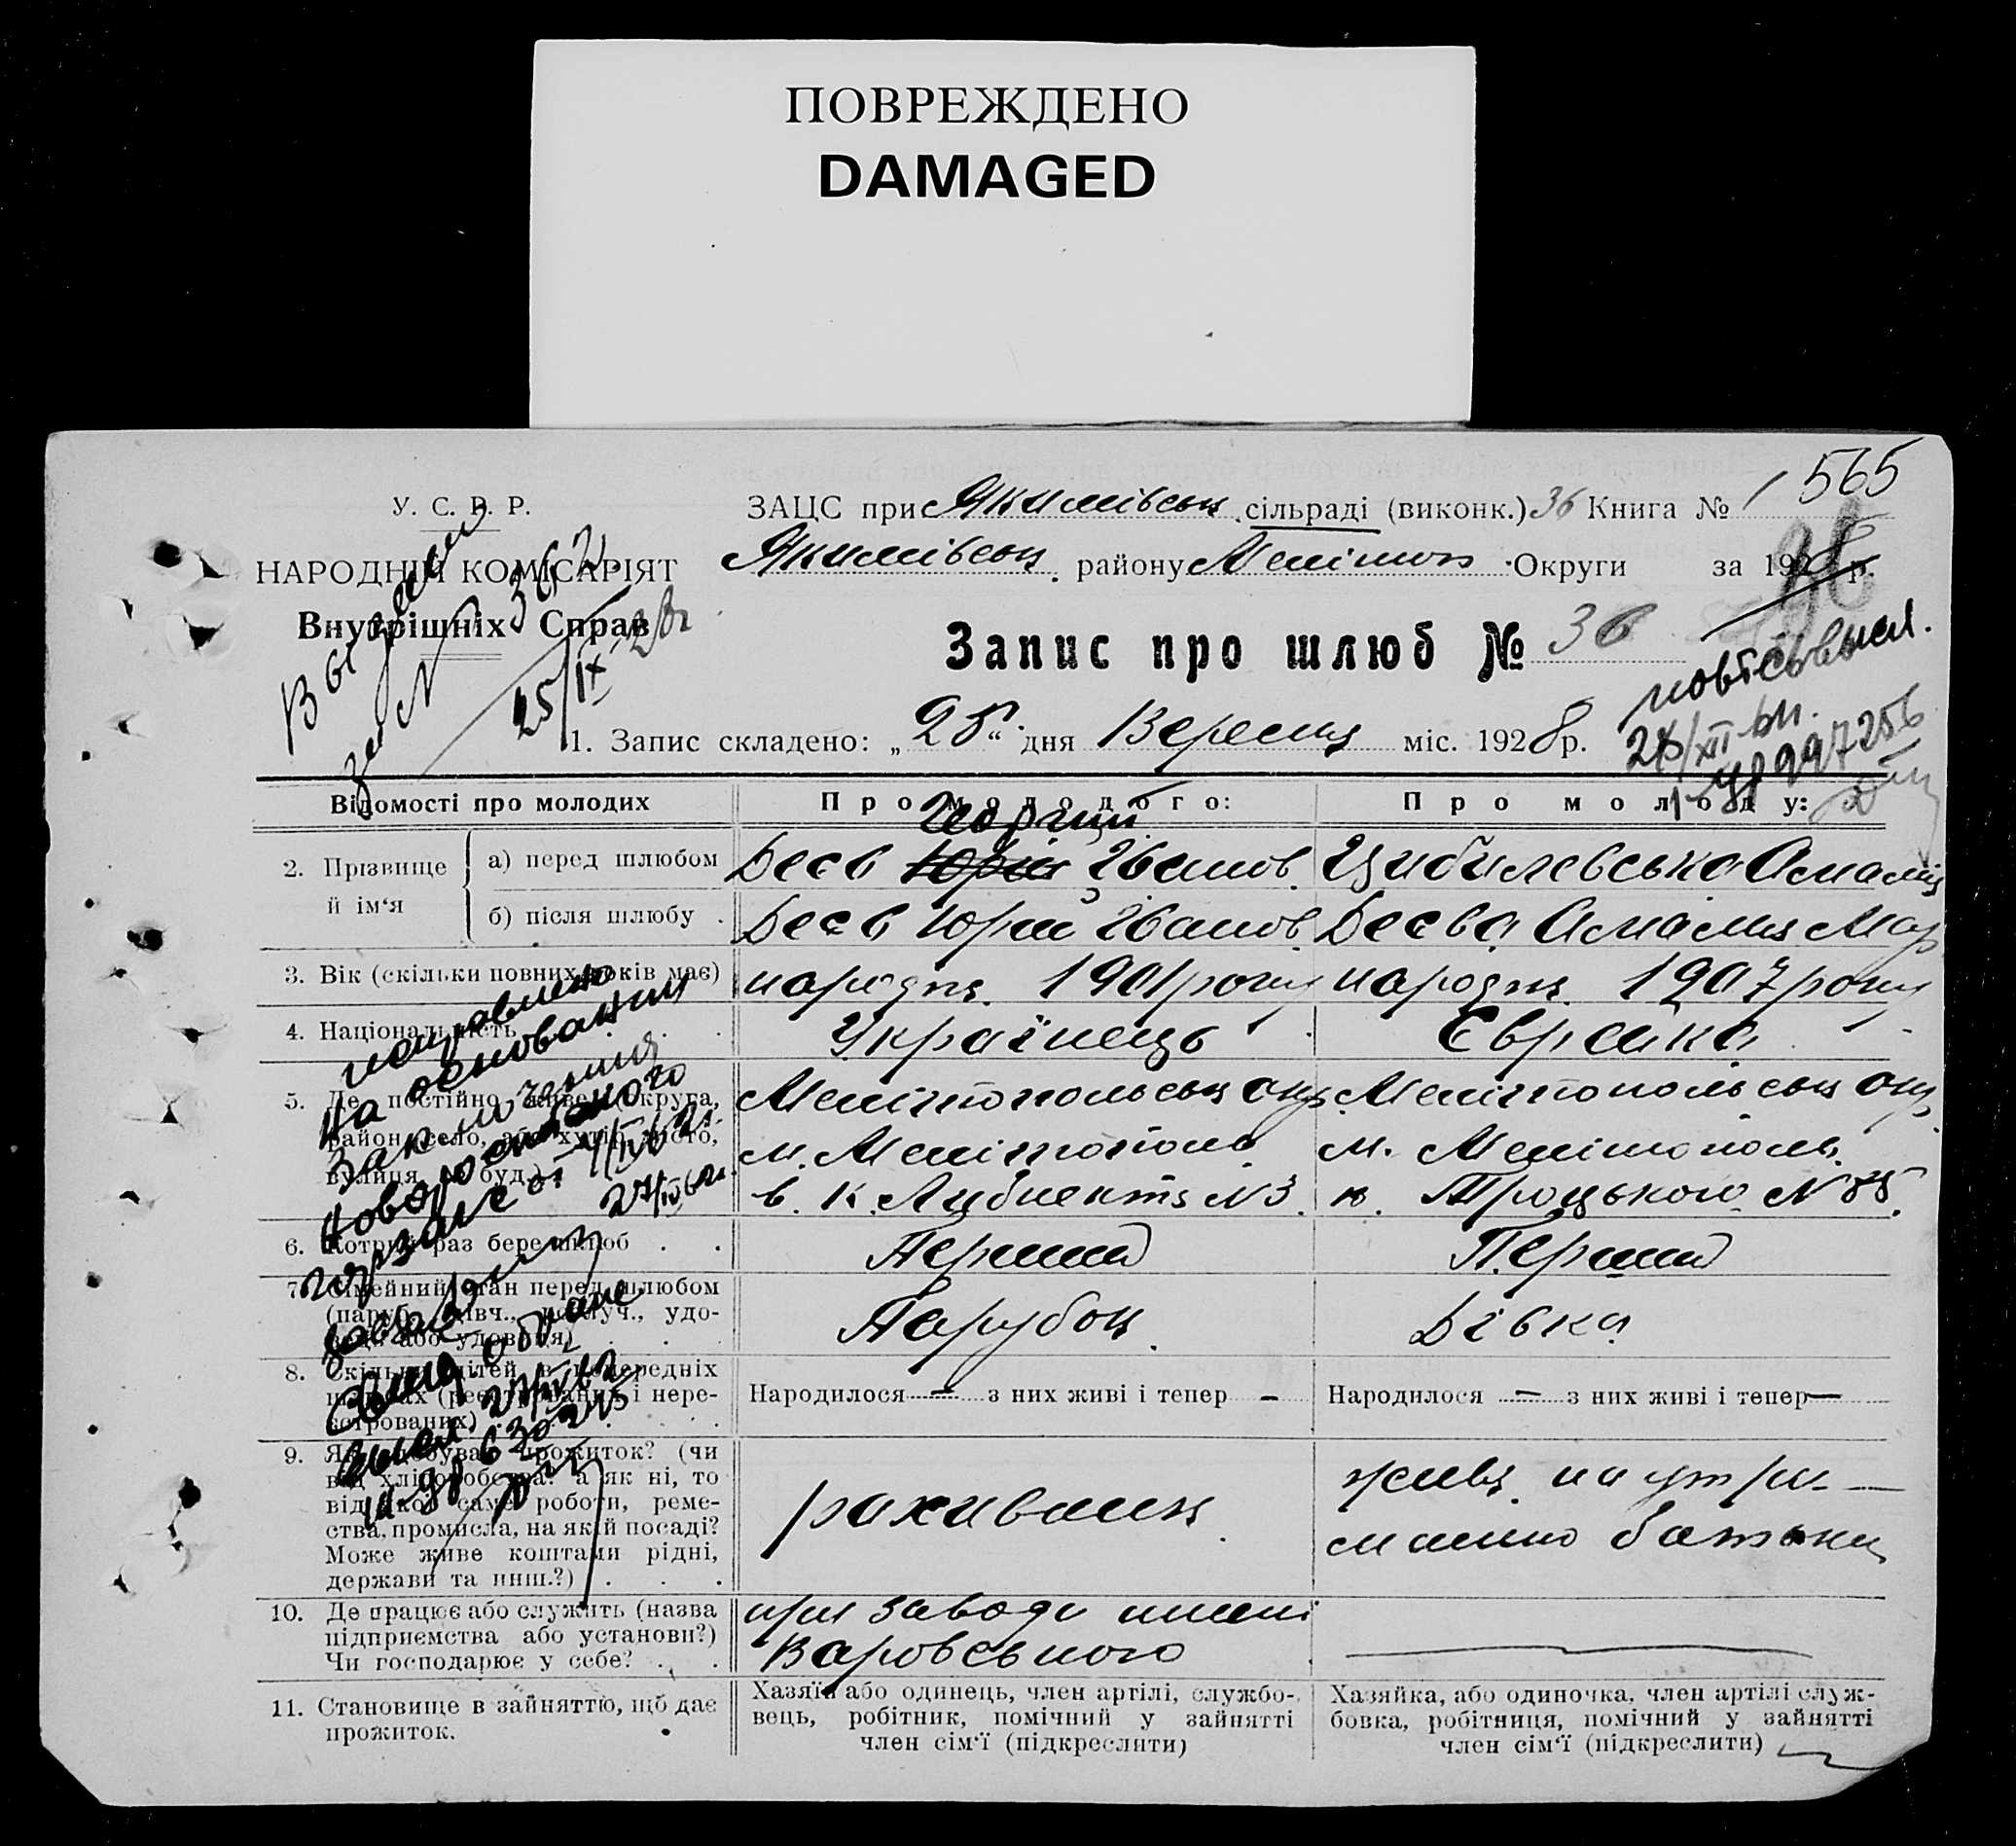 ПОВРЕЖДЕНО
DAMAGED
565
У. С. Р. Р.
НАРОДНІЙ КОМІСАРІЯТ
Внутрішніх Справ
ЗАЦС при Якимівськ. сільраді (виконк.) 36 Книга № 1
Якимівськ. району Мелітоп. Округи за 1928 р.
Запис про шлюб № 36
1. Запис складено: „25“ дня Вересня міс. 1928 р.
Выдано
за № 3662
25/IX-28
повт. свыд.
24/XII-61
997256
Відомості про молодих
Про молодого:
Про молоду:
2. Прізвище й ім‘я
а) перед шлюбом
Георгий
Деєв Юрій Іванов.
Цибилевська Амалія
б) після шлюбу .
Деєв Юрій Іванов.
Деєва Амалия Мар
3. Вік (скільки повних років має)
народж. 1901 року
народж. 1907 року
4. Національність . .
Українець
Єврейка
5. Де постійно живе (округа,
район, село, або хутір, місто,
вулиця, № буд.)
Мелітопольськ окр.
м. Мелітополь
в. К. Либкнехта N 3.
Мелітопольськ окр.
м. Мелітополь.
в. Троцького N 85.
6. Котрий раз бере шлюб . .
Перший
Перший
7. Сімейний стан перед шлюбом
(паруб., дівч., розлуч., удо-
вець або удовиця)
Парубок
Дівка
8. Скільки дітей в попередніх
шлюбах (реєстрованих і нере-
єстрованих)
Народилося — з них живі і тепер –
Народилося — з них живі і тепер —
9. Як здобуває прожиток? (чи
від хліборобства? а як ні, то
від якої саме роботи, реме-
ства, промисла, на якій посаді?
Може живе коштами рідні,
держави та инш.?) . . .
рахивник
живе на утри-
манню батьки
10. Де працює або служить (назва
підприємства або установи?)
Чи господарює у себе? . .
при заводи имені
Варовського
11. Становище в зайняттю, що дає
прожиток.
Хазяїн або одинець, член артілі, службо-
вець, робітник, помічний у зайнятті
член сім‘ї (підкреслити)
Хазяйка, або одиночка, член артілі служ-
бовка, робітниця, помічний у зайнятті
член сім‘ї (підкреслити)
исправлено
на основании
заключения
27/IV 62
630245